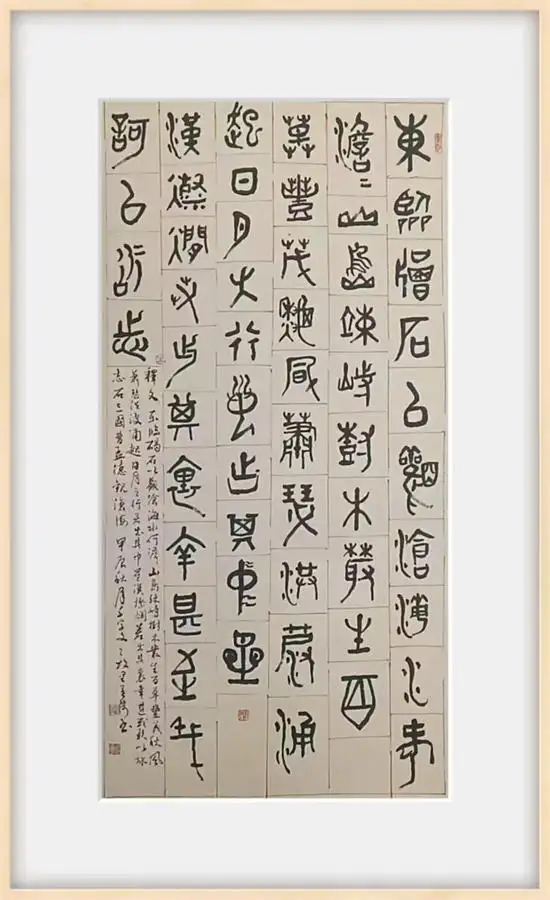 東臨碣石以觀滄海水何
澹〻山島竦峙樹木叢生百
草豐茂秋風蕭瑟洪波涌
起日月之行若出其中星
漢燦爛若出其裏幸甚至哉
歌以詠志
釋文 東臨碣石以觀滄海水何澹山島竦峙樹木叢生百草豐茂秋風
蕭瑟洪波涌起日月之行若出其中星漢燦爛若出其裏幸甚至哉歌以詠
志 右三國曹孟德觀滄海 甲辰秋月于字文之故里 書